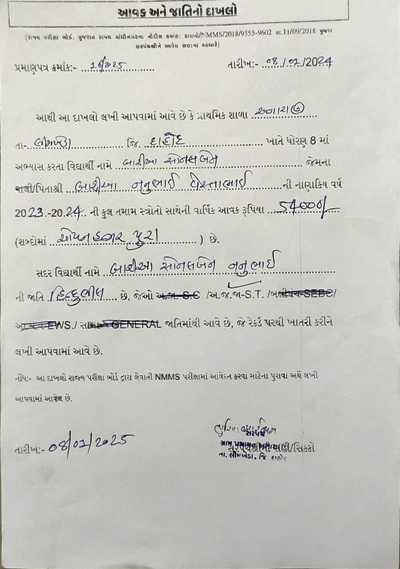 આવક અને જાતિનો દાખલો
(રાજ્ય પરીક્ષા બોર્ડ, ગુજરાત રાજ્ય ગાંધીનગરના નોટીસ ક્રમાંક: રાપબો/NMMS/2018/9555-9602 તા.11/09/2018 મુજબ
સરપંચશ્રીએ આપેલ સત્તાના આધારે)
પ્રમાણપત્ર ક્રમાંક:- 16/2025 તારીખ:- 08/02/2024
આથી આ દાખલો લખી આપવામાં આવે છે કે પ્રાથમિક શાળા
તા- લીમખેડા જિ. દાહોદ ખાતે ધોરણ 8 માં
અભ્યાસ કરતા વિદ્યાર્થી નામે બારીઆ સોનલબેન જેમના
વાલી/પિતાશ્રી બારીઆ નનુભાઈ ની નાણાકિય વર્ષ
2023-2024. ની કુલ તમામ સ્ત્રોતો સાથેની વાર્ષિક આવક રૂપિયા 54000/-
(શબ્દોમાં ચોપન હજાર પુરા) છે.
સદર વિદ્યાર્થી નામે બારીઆ સોનલબેન નનુભાઈ
ની જાતિ હિન્દુ ભીલ છે, જેઓ અ.જા.-S.C /અ.જ.જા-S.T. / -SEBC/
-EWS./ -GENERAL જાતિમાંથી આવે છે, જે રેકર્ડ પરથી ખાતરી કરીને
લખી આપવામાં આવે છે.
નોંધ:- આ દાખલો રાજ્ય પરીક્ષા બોર્ડ દ્વારા લેવાતી NMMS પરીક્ષામાં આવેદન કરવા માટેના પુરાવા અર્થે લખી
આપવામાં આવેલ છે.
તારીખ:- 08/02/2025
સરપંચ
સરપંચશ્રીની સહી/સિક્કો
તા. લીમખેડા, જિ. દાહોદ